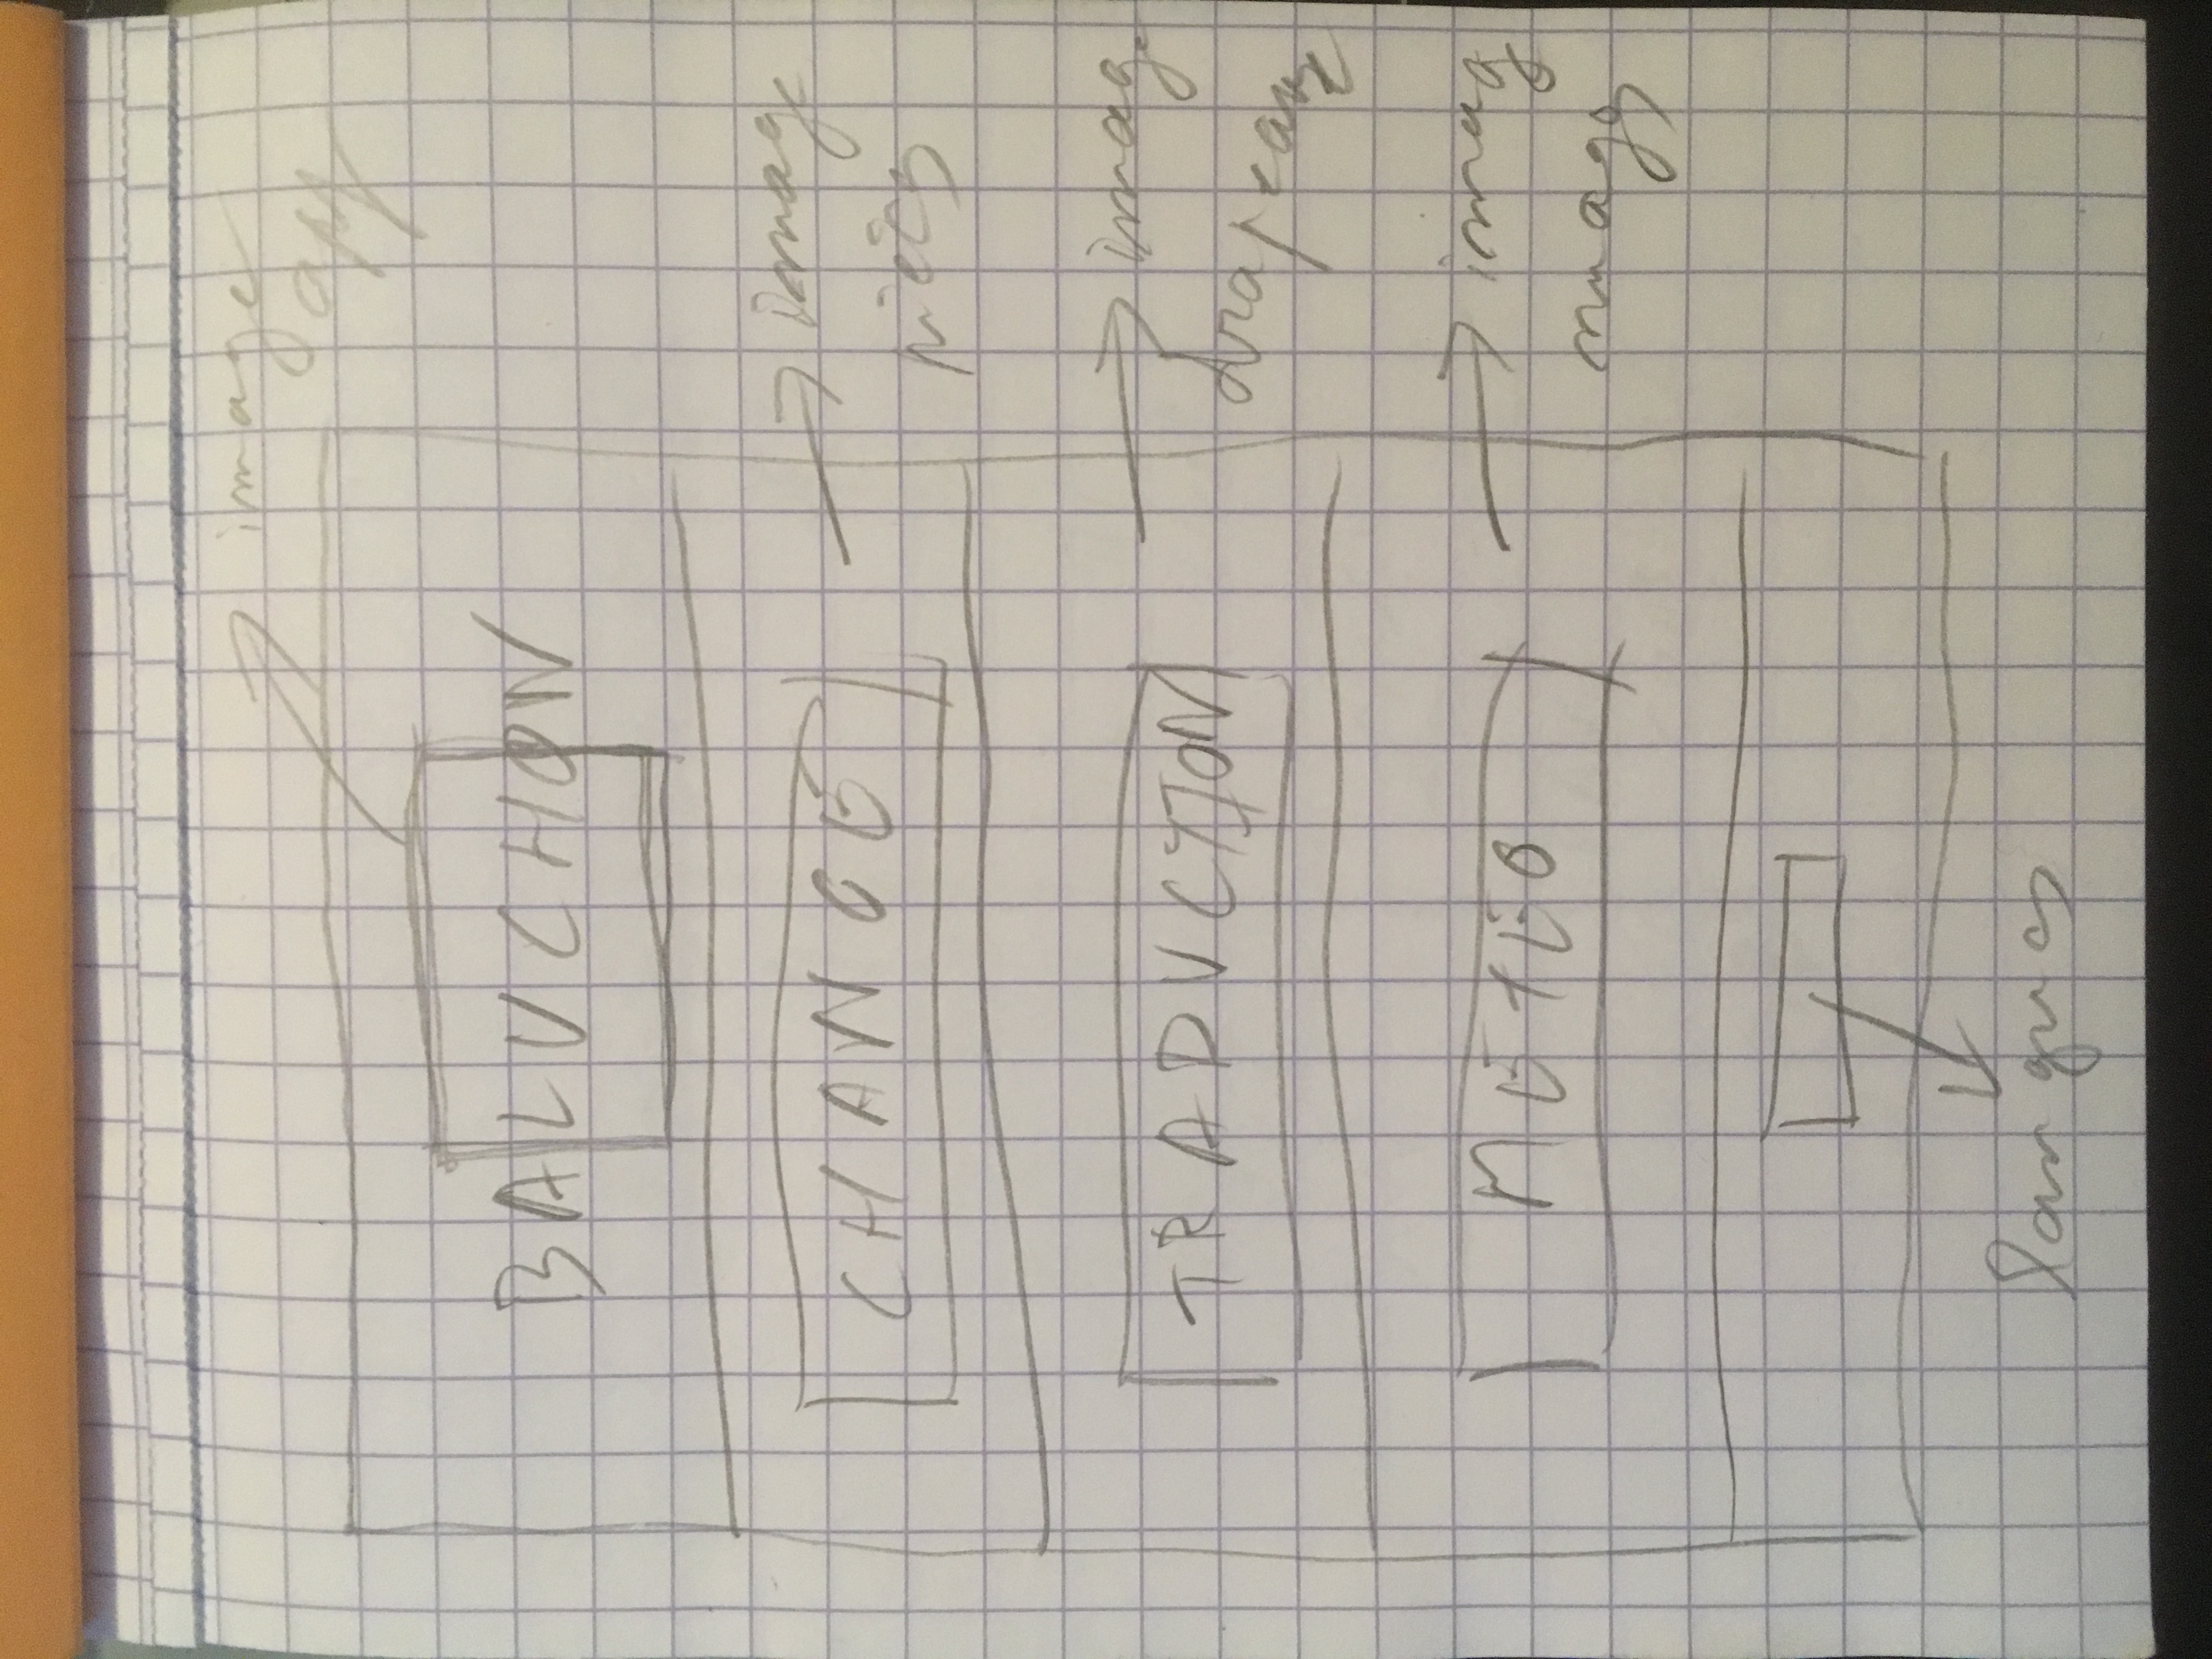 image
app
BALUCHON
CHANGE
image
pièces
TRADUCTION
image
drapeaux
METEO
imag
nuages
langues